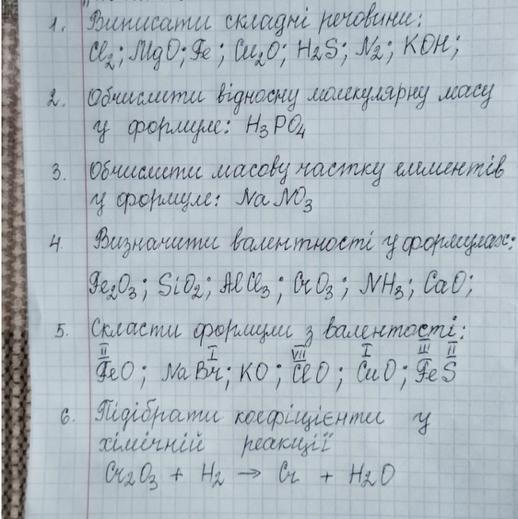 1. Виписати складні речовини:
Cl2; MgO; Fe; Cu2O; H2S; N2; KOH;
2. Обчислити відносну молекулярну масу
у формуле: H3PO4
3. Обчислити масову частку елементів
у формуле: NaNO3
4. Визначити валентності у формулах:
Fe2O3; SiO2; AlCl3; CrO3; NH3; CaO;
5. Скласти формули з валентості:
II I VII I III II
FeO; NaBr; KO; ClO; CuO; FeS
6. Підібрати коефіцієнти у
хімічній реакції
Cr2O3 + H2 → Cr + H2O